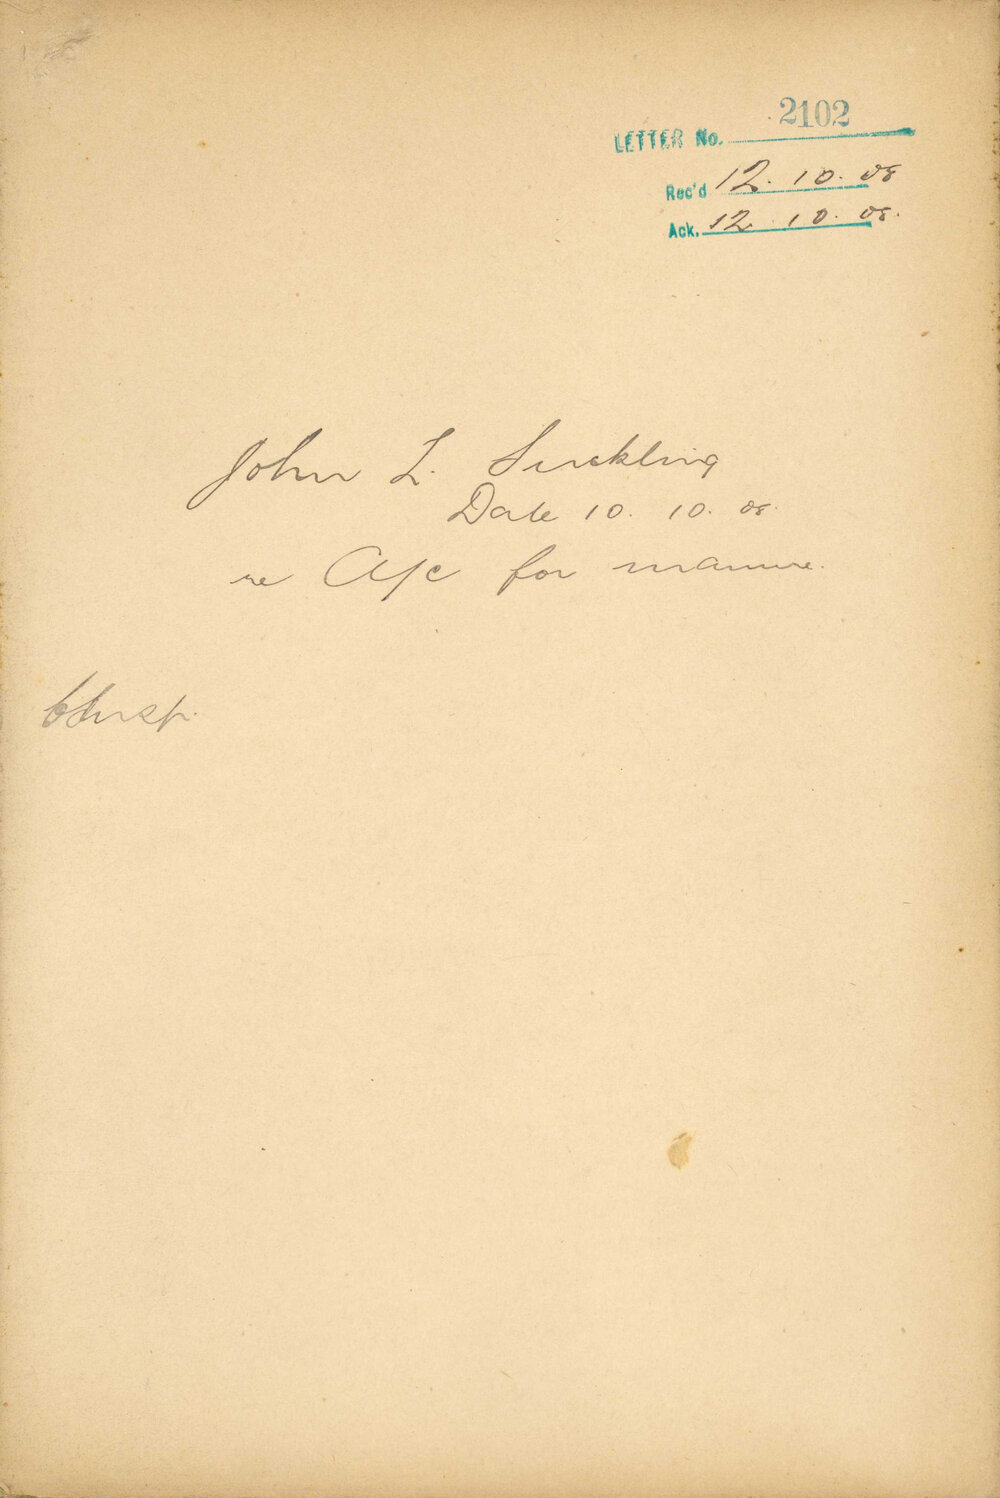 LETTER No. 2102
Rec'd 12. 10. 08
Ack. 12. 10. 08.
John L. Suckling
Date 10. 10. 08.
re A/c for manure.